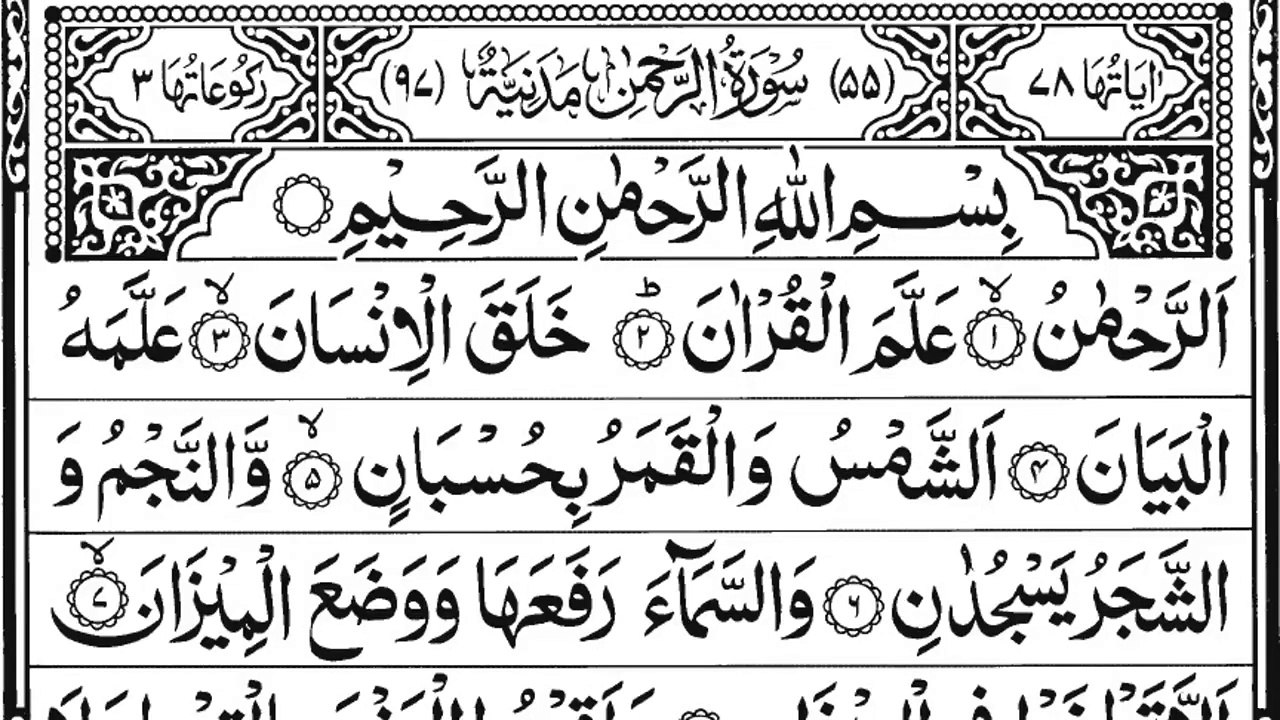 اٰيَاتُهَا ٧٨ (٥٥) سُوۡرَةُ الرَّحۡمٰنِ مَدَنِيَّةٌ (٩٧) رُكُوۡعَاتُهَا ٣
بِسۡمِ اللّٰهِ الرَّحۡمٰنِ الرَّحِيۡمِ
اَلرَّحۡمٰنُ ۙ‏﴿۱﴾ عَلَّمَ الۡقُرۡاٰنَ ؕ‏﴿۲﴾ خَلَقَ الۡاِنۡسَانَ ۙ‏﴿۳﴾ عَلَّمَهُ
الۡبَيَانَ‏﴿۴﴾ اَلشَّمۡسُ وَالۡقَمَرُ بِحُسۡبَانٍ ۙ‏﴿۵﴾ وَّالنَّجۡمُ وَ
الشَّجَرُ يَسۡجُدٰنِ‏﴿۶﴾ وَالسَّمَآءَ رَفَعَهَا وَوَضَعَ الۡمِيۡزَانَ ۙ‏﴿۷﴾